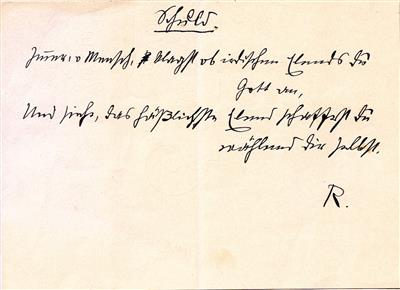 Schuld.
Immer, o Mensch, klagst ob irdischen Elends du
Gott an,
Und siehe, das häßlichste Elend schaffest du
wählend dir selbst.
R.